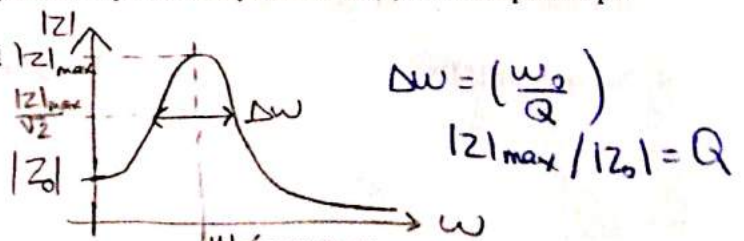 |Z|
|Z|max
|Z|max/√2
|Z₀|
Δω
ω
Δω = (ω₀/Q)
|Z|max / |Z₀| = Q